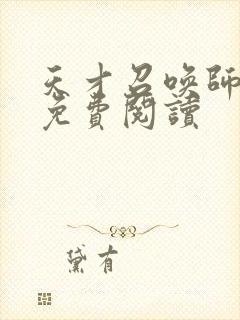 天才召喚師
免費閱讀
黛有